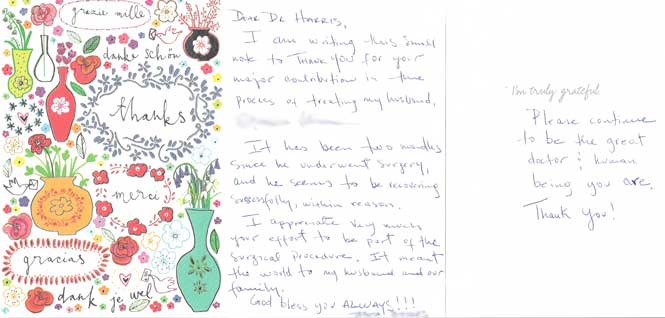 grazie mille
danke schön
thanks
merci
gracias
dank je wel
DEAR DR HARRIS,
I am writing this small
note to THANK YOU for your
major contribution in the
process of treating my husband,
It has been two months
since he underwent surgery,
and he seems to be recovering
successfully, within reason.
I appreciate very much
your effort to be part of the
surgical procedure. It meant
the world to my husband and our
family.
God bless you ALWAYS!!!
I'm truly grateful
Please continue
to be the great
doctor & human
being you are.
Thank you!